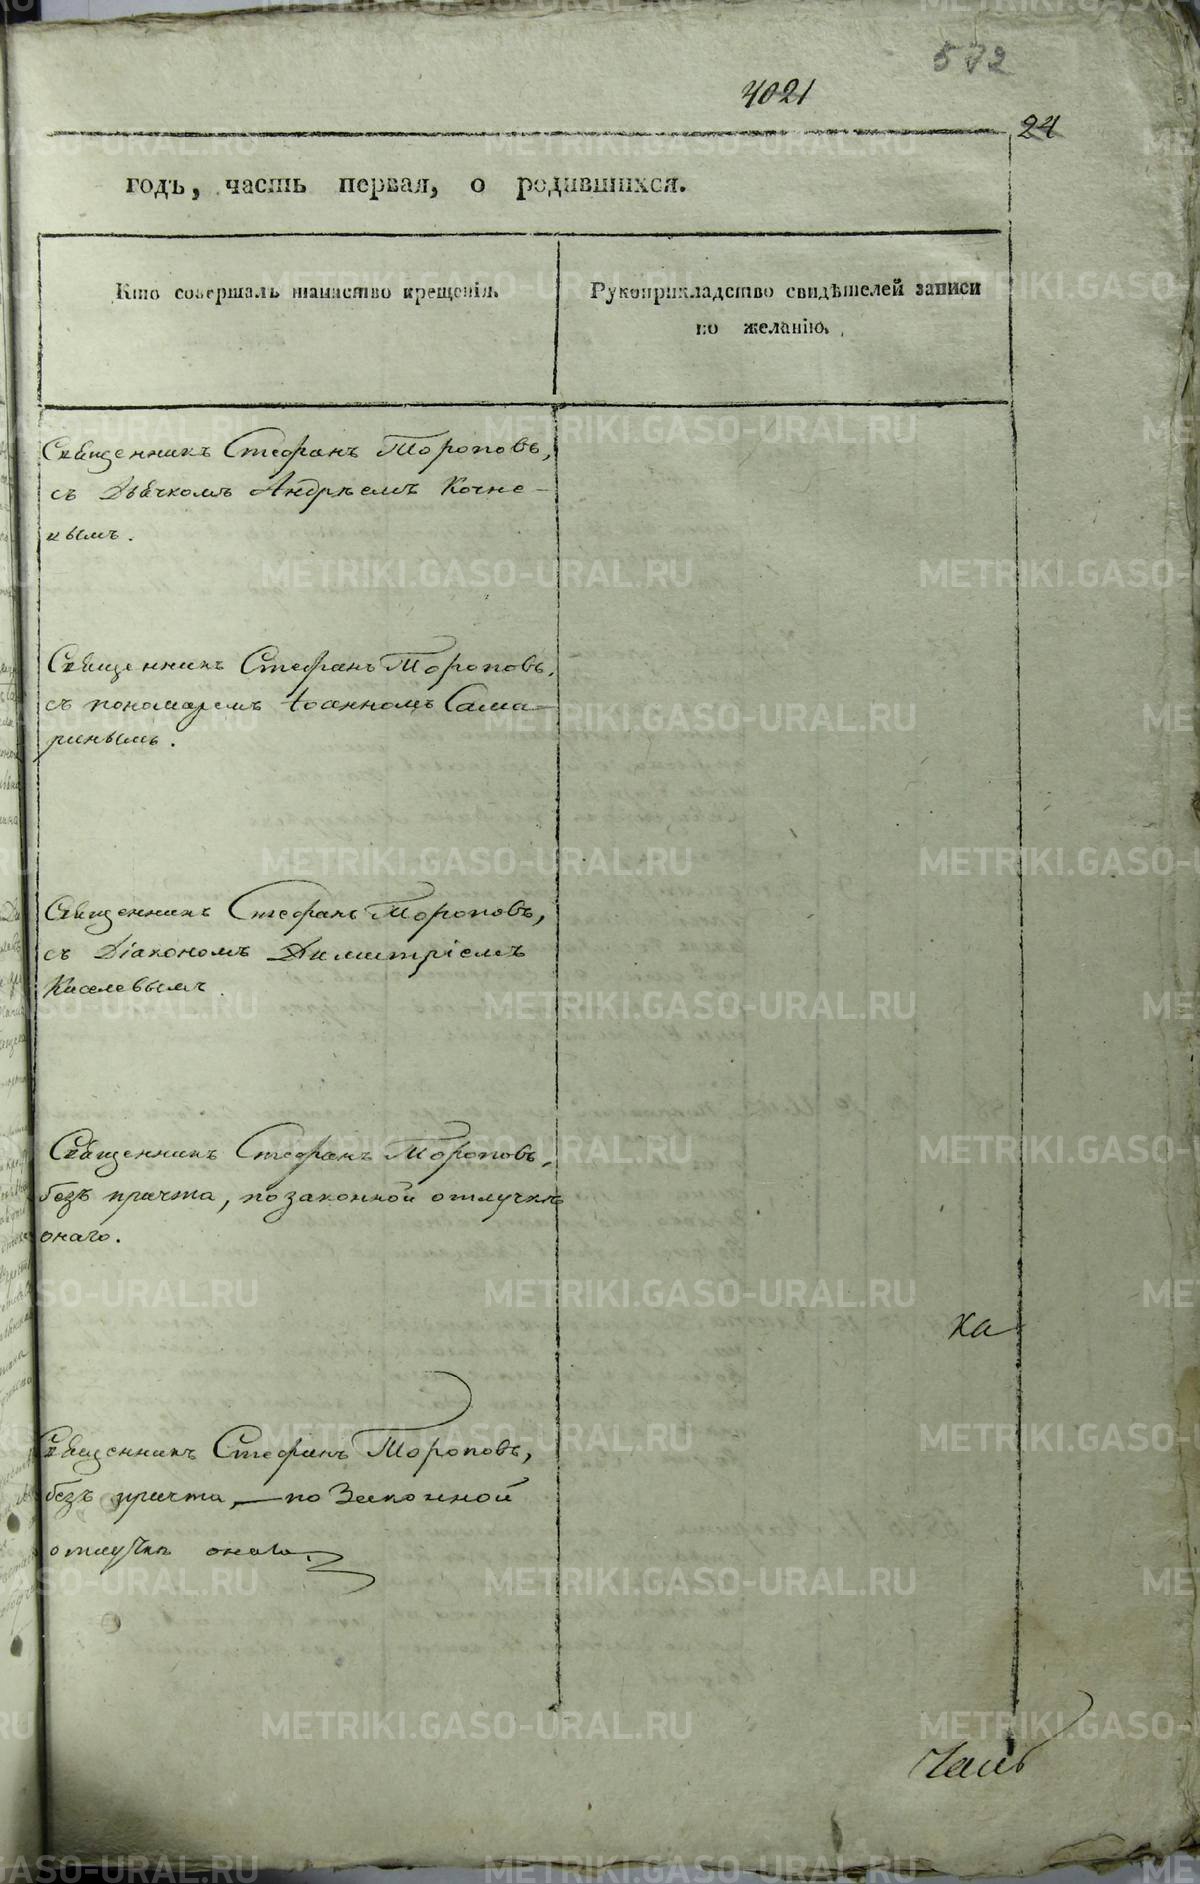 572
4021
24
годъ, часть первая, о родившихся.
Кто совершалъ таинство крещенія.
Рукоприкладство свидѣтелей записи
по желанію.
Священникъ Стефанъ Тороповъ,
съ Дьячкомъ Андреемъ Кочне-
вымъ.
Священникъ Стефанъ Тороповъ,
съ пономаремъ Іоанномъ Сама-
ринымъ.
Священникъ Стефанъ Тороповъ,
съ Діакономъ Димитріемъ
Киселевымъ.
Священникъ Стефанъ Тороповъ,
безъ причта, по законной отлучкѣ
онаго.
ка
Священникъ Стефанъ Тороповъ,
безъ причта, — по Законной
отлучкѣ онаго.
METRIKI.GASO-URAL.RU